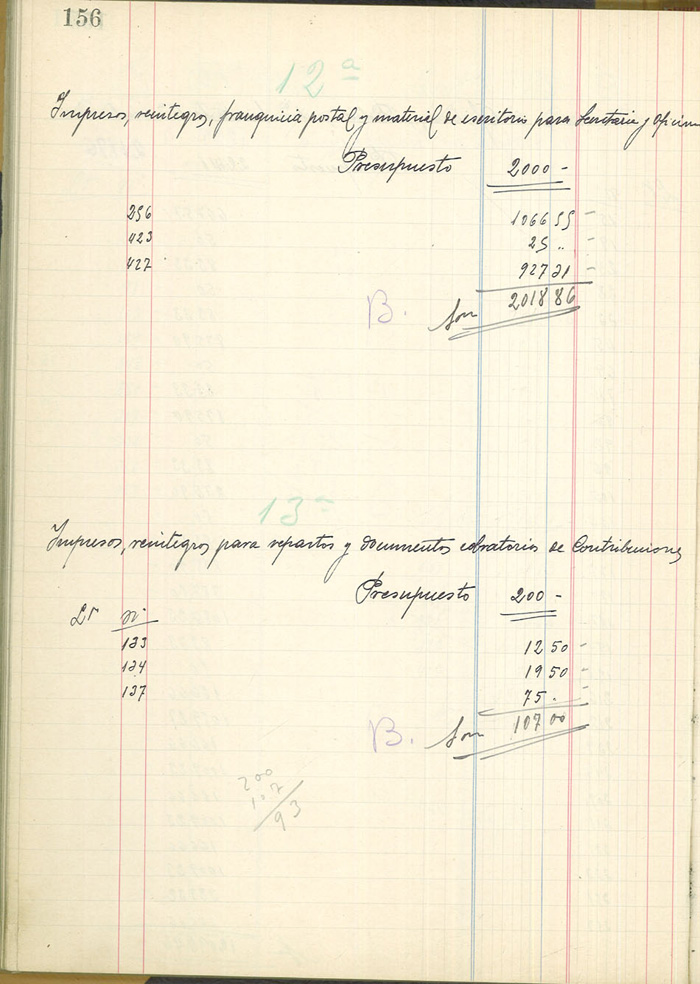 156
12ª
Impresos, reintegros, franquicia postal y material de escritorio para Secretaria y Oficina
Presupuesto 2000 -
256 1066 55 -
423 25 " -
427 927 31 -
B. Son 2018 86
13ª
Impresos, reintegros para repartos y documentos cobratorios de Contribuciones
Presupuesto 200 -
Lº nº
133 12 50 -
134 19 50 -
137 75 . -
B. Son 107 00
200
107
93